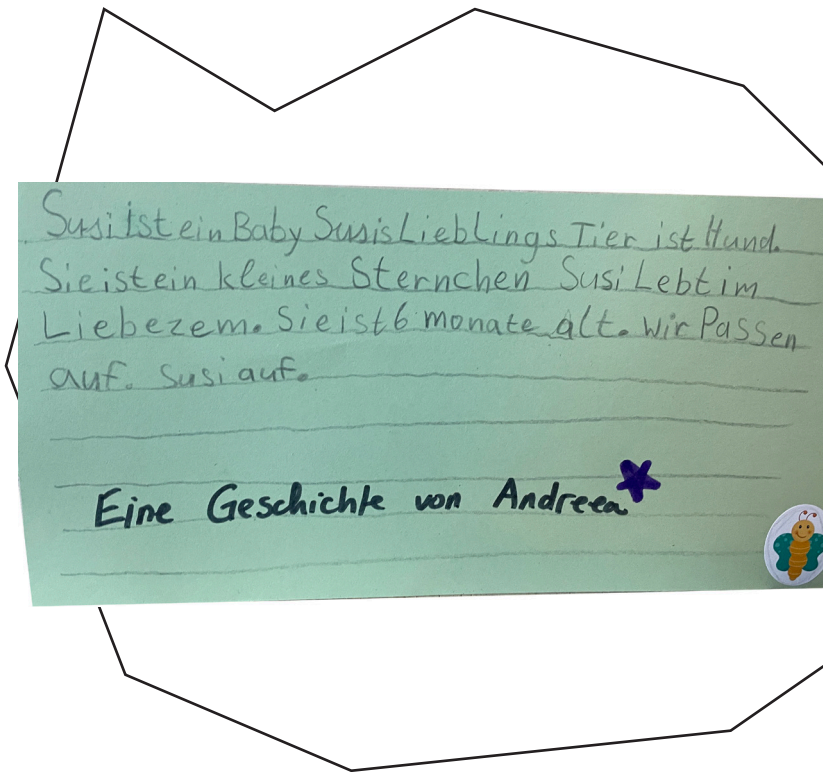 Susi ist ein Baby Susis Lieblings Tier ist Hund.
Sie ist ein kleines Sternchen Susi Lebt im
Liebezem. Sie ist 6 monate alt. wir Passen
auf. Susi auf.
Eine Geschichte von Andreea